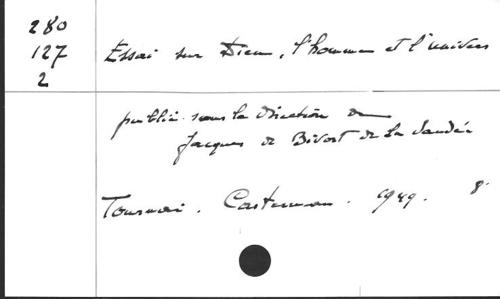 280
127 Essai sur Dieu, l'homme et l'univers
2
publié sous la direction de
Jacques de Bivort de la Saudée
Tournai. Casterman. 1949. 8°